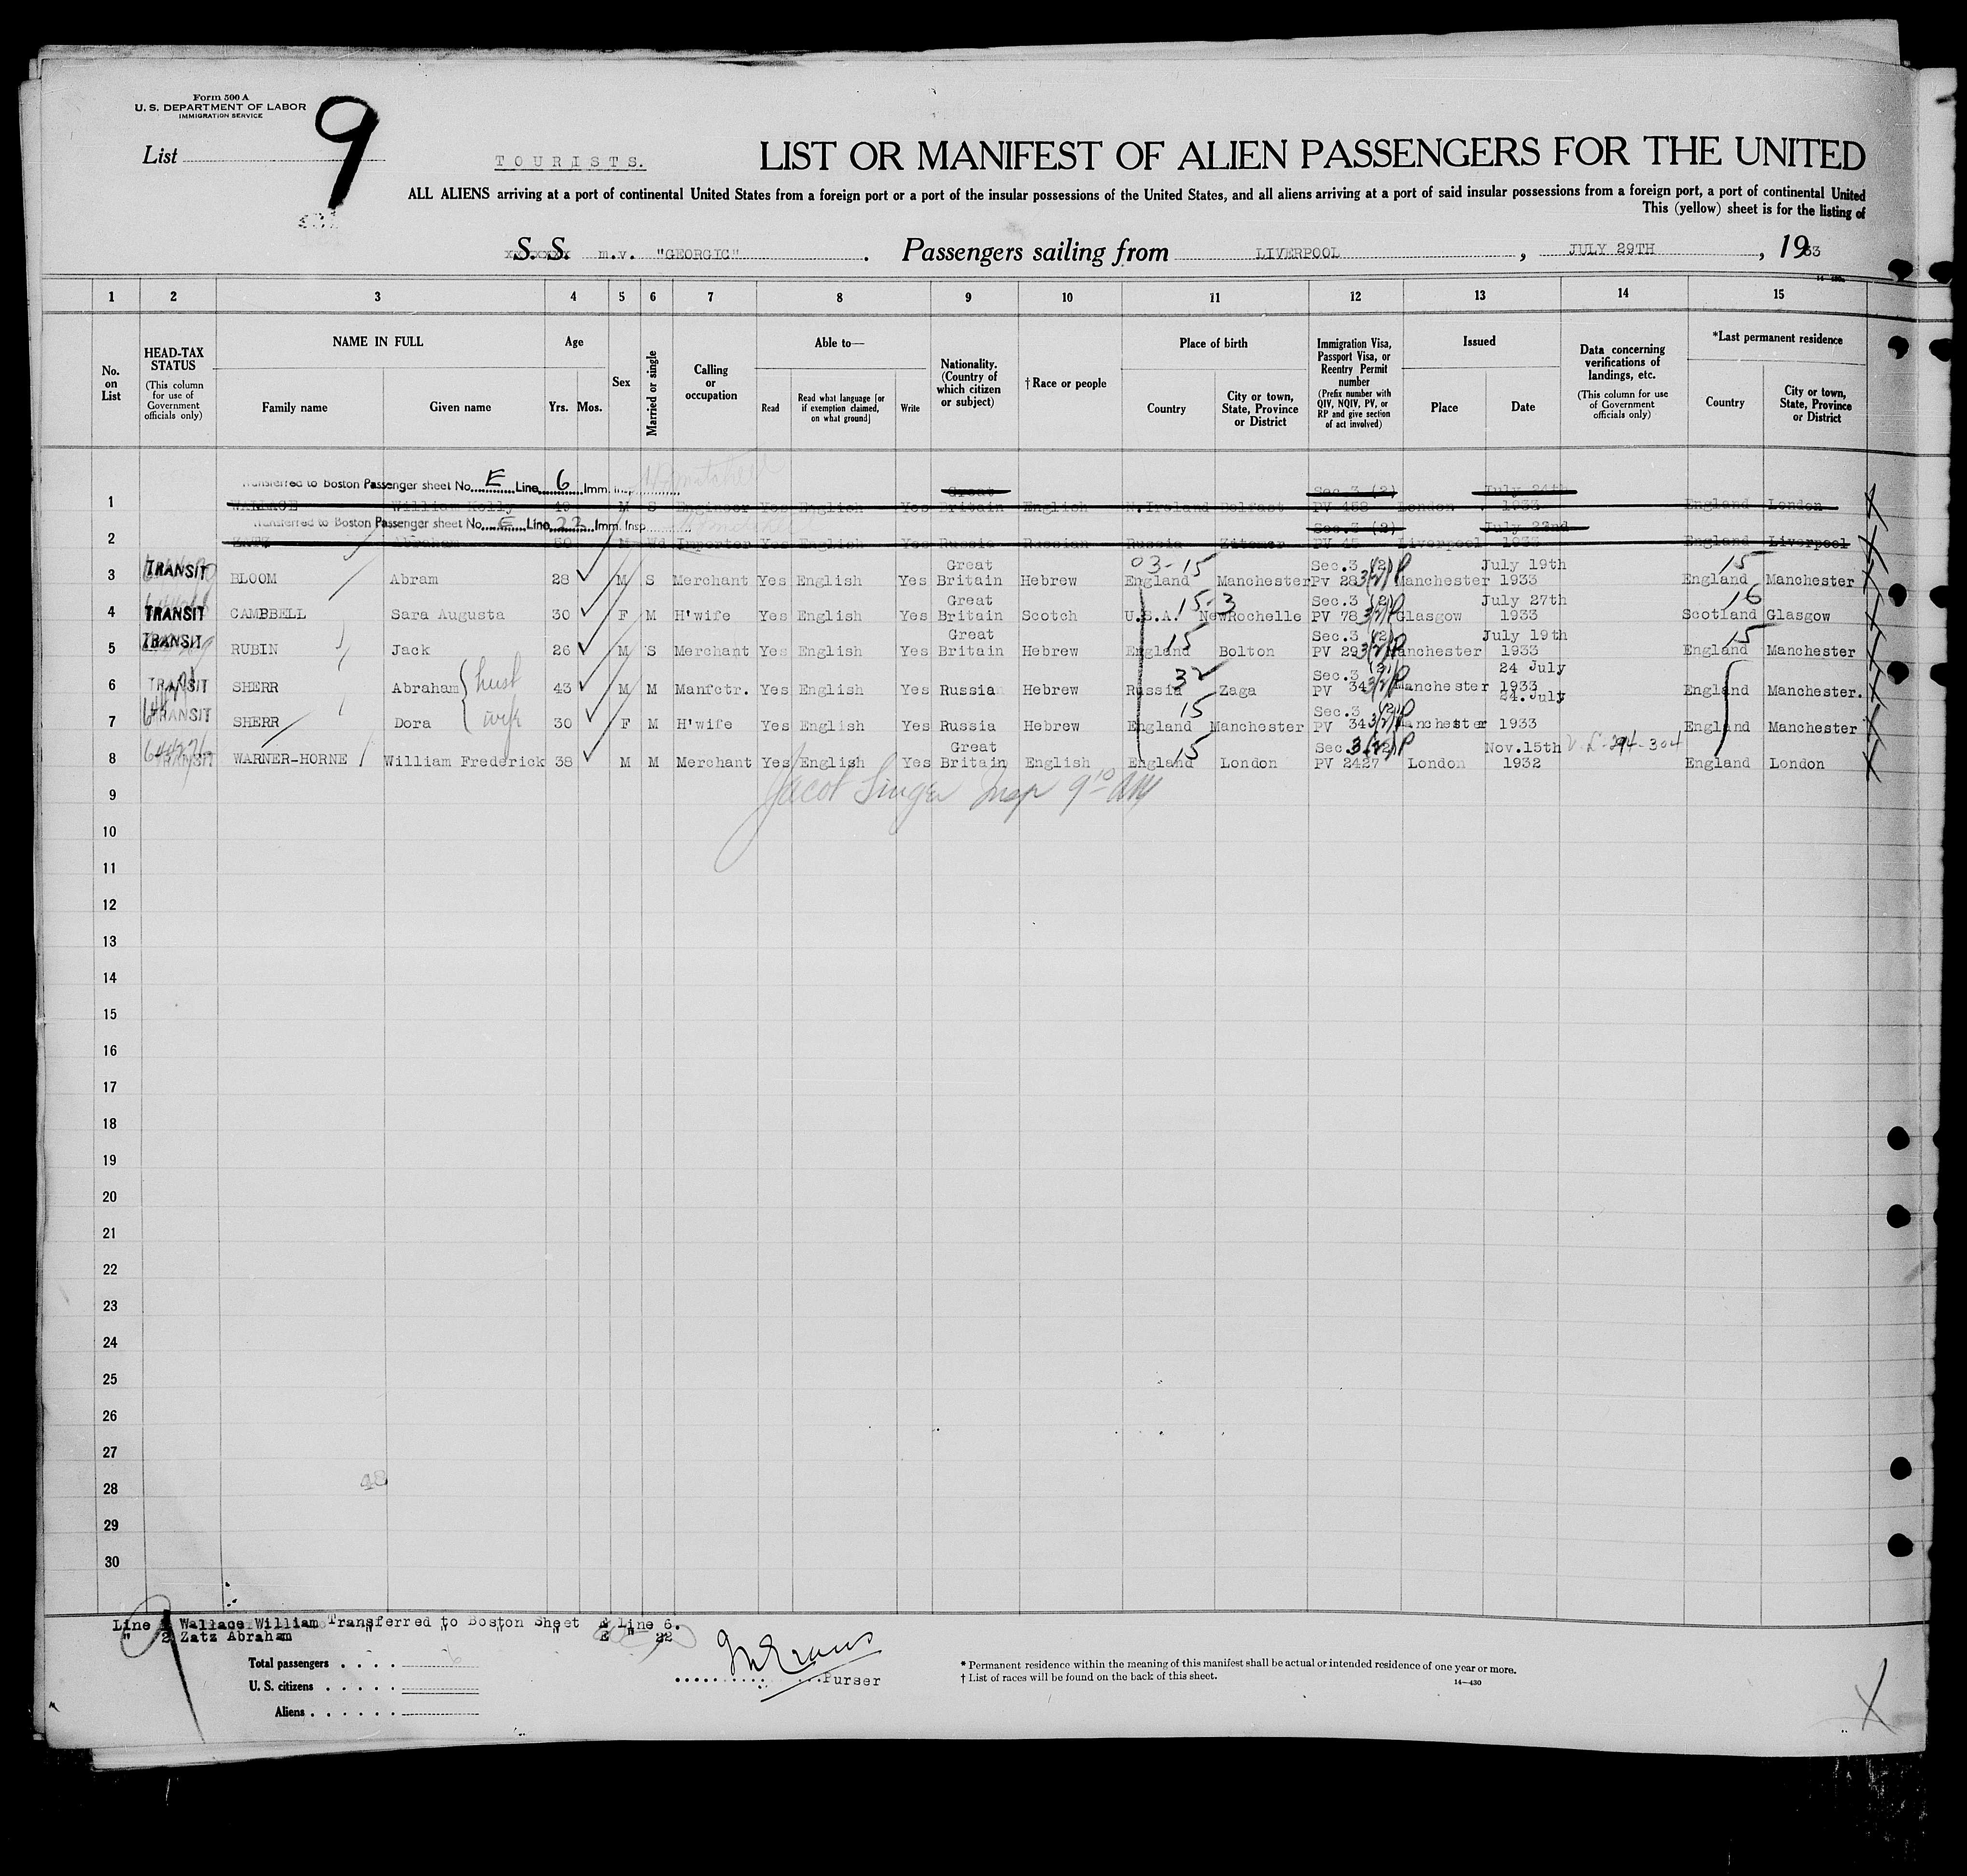 Form 500 A
U. S. DEPARTMENT OF LABOR
IMMIGRATION SERVICE
List 9
TOURISTS.
LIST OR MANIFEST OF ALIEN PASSENGERS FOR THE UNITED
ALL ALIENS arriving at a port of continental United States from a foreign port or a port of the insular possessions of the United States, and all aliens arriving at a port of said insular possessions from a foreign port, a port of continental United
This (yellow) sheet is for the listing of
S. S. m.v. "GEORGIC". Passengers sailing from LIVERPOOL, JULY 29TH, 1933
1 2 3 4 5 6 7 8 9 10 11 12 13 14 15
No. on List
HEAD-TAX STATUS (This column for use of Government officials only)
NAME IN FULL
Family name Given name
Age
Yrs. Mos.
Sex
Married or single
Calling or occupation
Able to—
Read Read what language [or if exemption claimed, on what ground] Write
Nationality. (Country of which citizen or subject)
†Race or people
Place of birth
Country City or town, State, Province or District
Immigration Visa, Passport Visa, or Reentry Permit number (Prefix number with QIV, NQIV, PV, or RP and give section of act involved)
Issued
Place Date
Data concerning verifications of landings, etc. (This column for use of Government officials only)
*Last permanent residence
Country City or town, State, Province or District
Transferred to Boston Passenger sheet No. E Line 6 Imm. Insp.
1 WALLACE William Kelly 49 M S Engineer Yes English Yes Great Britain English N.Ireland Belfast Sec.3 (2) PV 458 London July 24th 1933 England London
Transferred to Boston Passenger sheet No. E Line 22 Imm. Insp
2 ZATZ Abraham 50 M Wd Importer Yes English Yes Russia Russian Russia Zitomer Sec.3 (2) PV 45 Liverpool July 22nd 1933 England Liverpool
3 TRANSIT BLOOM Abram 28 M S Merchant Yes English Yes Great Britain Hebrew 03-15 England Manchester Sec.3 (2) PV 28 3(2)P Manchester July 19th 1933 15 England Manchester
4 TRANSIT CAMPBELL Sara Augusta 30 F M H'wife Yes English Yes Great Britain Scotch 15-3 U.S.A. NewRochelle Sec.3 (2) PV 78 3(2)P Glasgow July 27th 1933 16 Scotland Glasgow
5 TRANSIT RUBIN Jack 26 M S Merchant Yes English Yes Great Britain Hebrew 15 England Bolton Sec.3 (2) PV 29 3(2)P Manchester July 19th 1933 15 England Manchester
6 TRANSIT SHERR Abraham husb 43 M M Manfctr. Yes English Yes Russia Hebrew 32 Russia Zaga Sec.3 (2) PV 34 3(2)P Manchester 24 July 1933 England Manchester.
7 TRANSIT SHERR Dora wife 30 F M H'wife Yes English Yes Russia Hebrew 15 England Manchester Sec.3 (2) PV 34 3(2)P Manchester 24.July 1933 England Manchester
8 TRANSIT WARNER-HORNE William Frederick 38 M M Merchant Yes English Yes Great Britain English 15 England London Sec.3(2) P PV 2427 London Nov.15th 1932 England London
Jacob Singer Insp 9 10 AM
9
10
11
12
13
14
15
16
17
18
19
20
21
22
23
24
25
26
27
28
29
30
48
Line 1 Wallace William Transferred to Boston Sheet E Line 6.
" 2 Zatz Abraham " " " " E " 22
Total passengers . . . . 6
U. S. citizens . . . . .
Aliens . . . . . .
Purser
* Permanent residence within the meaning of this manifest shall be actual or intended residence of one year or more.
† List of races will be found on the back of this sheet.
14—430